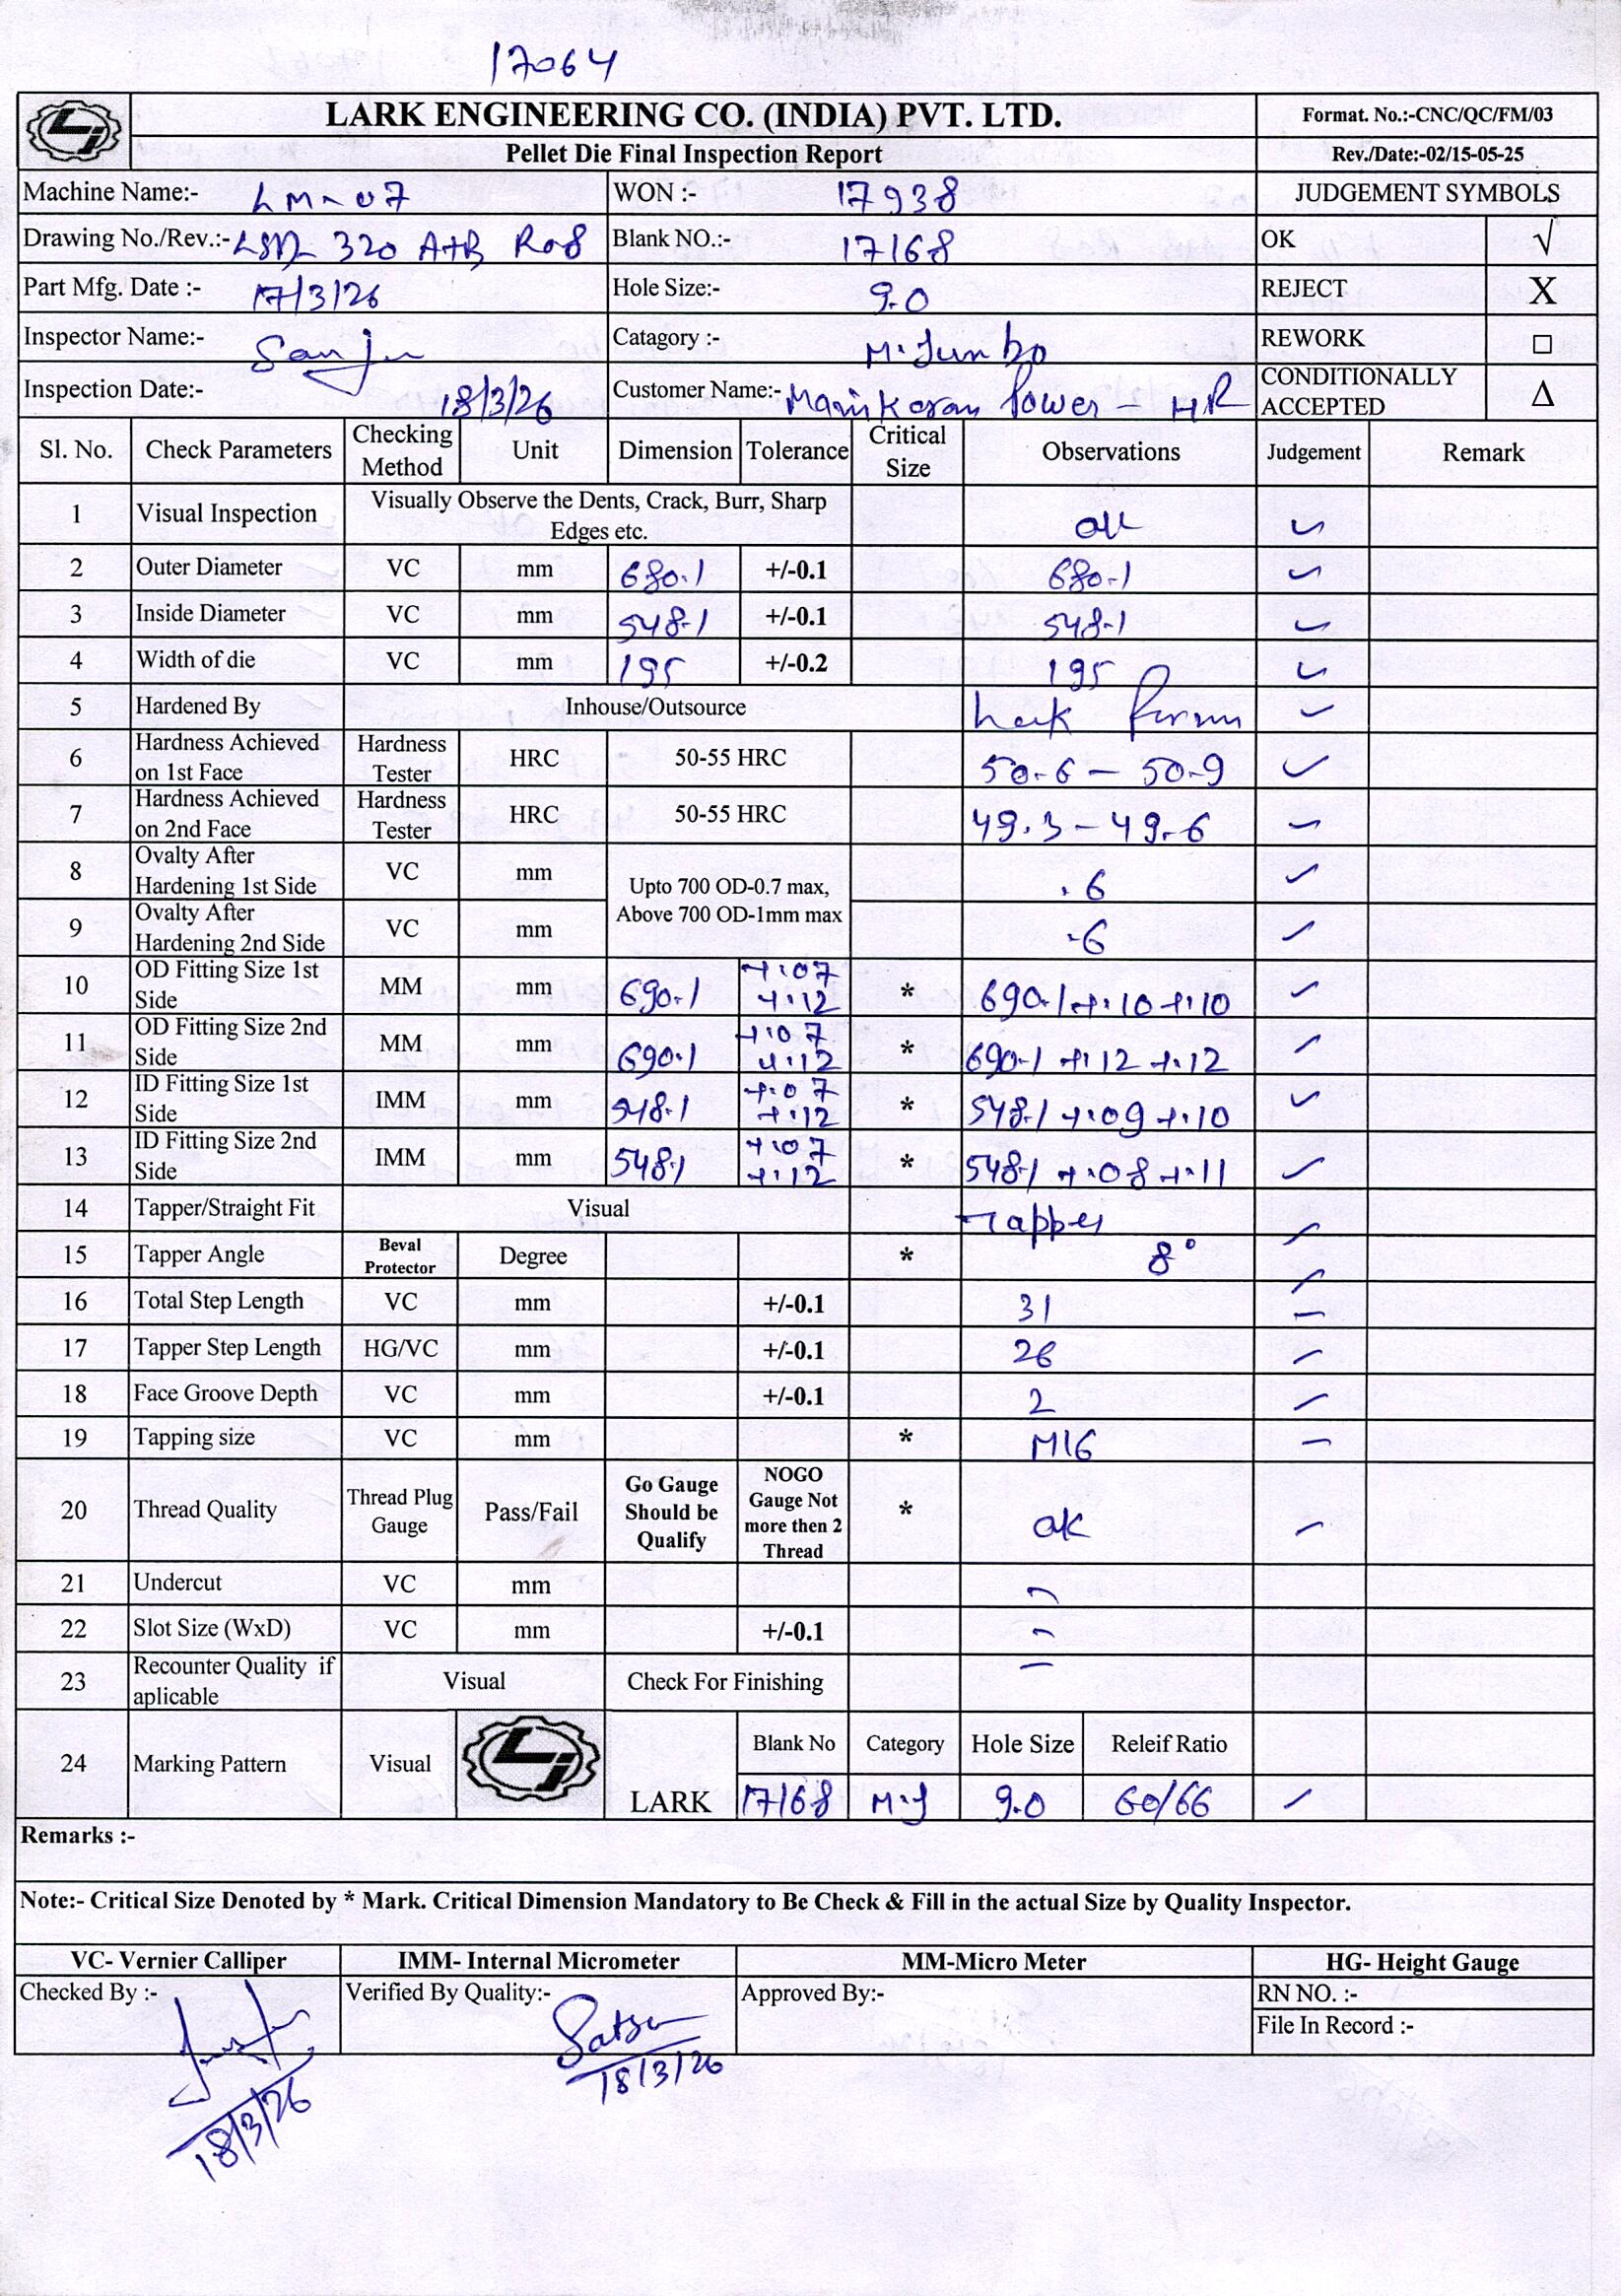 17064
LARK ENGINEERING CO. (INDIA) PVT. LTD.
Format. No.:-CNC/QC/FM/03
Pellet Die Final Inspection Report
Rev./Date:-02/15-05-25
Machine Name:- LM-07 WON :- 17938 JUDGEMENT SYMBOLS
Drawing No./Rev.:- 320 A+B R08 Blank NO.:- 17168 OK √
Part Mfg. Date :- 17/3/26 Hole Size:- 9.0 REJECT X
Inspector Name:- Sanju Catagory :- M.Jumbo REWORK □
Inspection Date:- 18/3/26 Customer Name:- Manikaran Power - HR CONDITIONALLY ACCEPTED Δ
Sl. No. Check Parameters Checking Method Unit Dimension Tolerance Critical Size Observations Judgement Remark
1 Visual Inspection Visually Observe the Dents, Crack, Burr, Sharp Edges etc. ok ✓
2 Outer Diameter VC mm 680.1 +/-0.1 680.1 ✓
3 Inside Diameter VC mm 548.1 +/-0.1 548.1 ✓
4 Width of die VC mm 195 +/-0.2 195 ✓
5 Hardened By Inhouse/Outsource Lark ✓
6 Hardness Achieved on 1st Face Hardness Tester HRC 50-55 HRC 50.6 - 50.9 ✓
7 Hardness Achieved on 2nd Face Hardness Tester HRC 50-55 HRC 49.3 - 49.6 ✓
8 Ovalty After Hardening 1st Side VC mm Upto 700 OD-0.7 max, Above 700 OD-1mm max .6 ✓
9 Ovalty After Hardening 2nd Side VC mm .6 ✓
10 OD Fitting Size 1st Side MM mm 690.1 +.07 +.12 * 690.1 +.10 +.10 ✓
11 OD Fitting Size 2nd Side MM mm 690.1 +.07 +.12 * 690.1 +.12 +.12 ✓
12 ID Fitting Size 1st Side IMM mm 548.1 +.07 +.12 * 548.1 +.09 +.10 ✓
13 ID Fitting Size 2nd Side IMM mm 548.1 +.07 +.12 * 548.1 +.08 +.11 ✓
14 Tapper/Straight Fit Visual Tapper ✓
15 Tapper Angle Beval Protector Degree * 8° ✓
16 Total Step Length VC mm +/-0.1 31 ✓
17 Tapper Step Length HG/VC mm +/-0.1 26 ✓
18 Face Groove Depth VC mm +/-0.1 2 ✓
19 Tapping size VC mm * M16 ✓
20 Thread Quality Thread Plug Gauge Pass/Fail Go Gauge Should be Qualify NOGO Gauge Not more then 2 Thread * ok ✓
21 Undercut VC mm -
22 Slot Size (WxD) VC mm +/-0.1 -
23 Recounter Quality if aplicable Visual Check For Finishing -
24 Marking Pattern Visual LARK Blank No Category Hole Size Releif Ratio
17168 M.J 9.0 60/66 ✓
Remarks :-
Note:- Critical Size Denoted by * Mark. Critical Dimension Mandatory to Be Check & Fill in the actual Size by Quality Inspector.
VC- Vernier Calliper IMM- Internal Micrometer MM-Micro Meter HG- Height Gauge
Checked By :- Verified By Quality:- Approved By:- RN NO. :-
File In Record :-
18/3/26 18/3/26